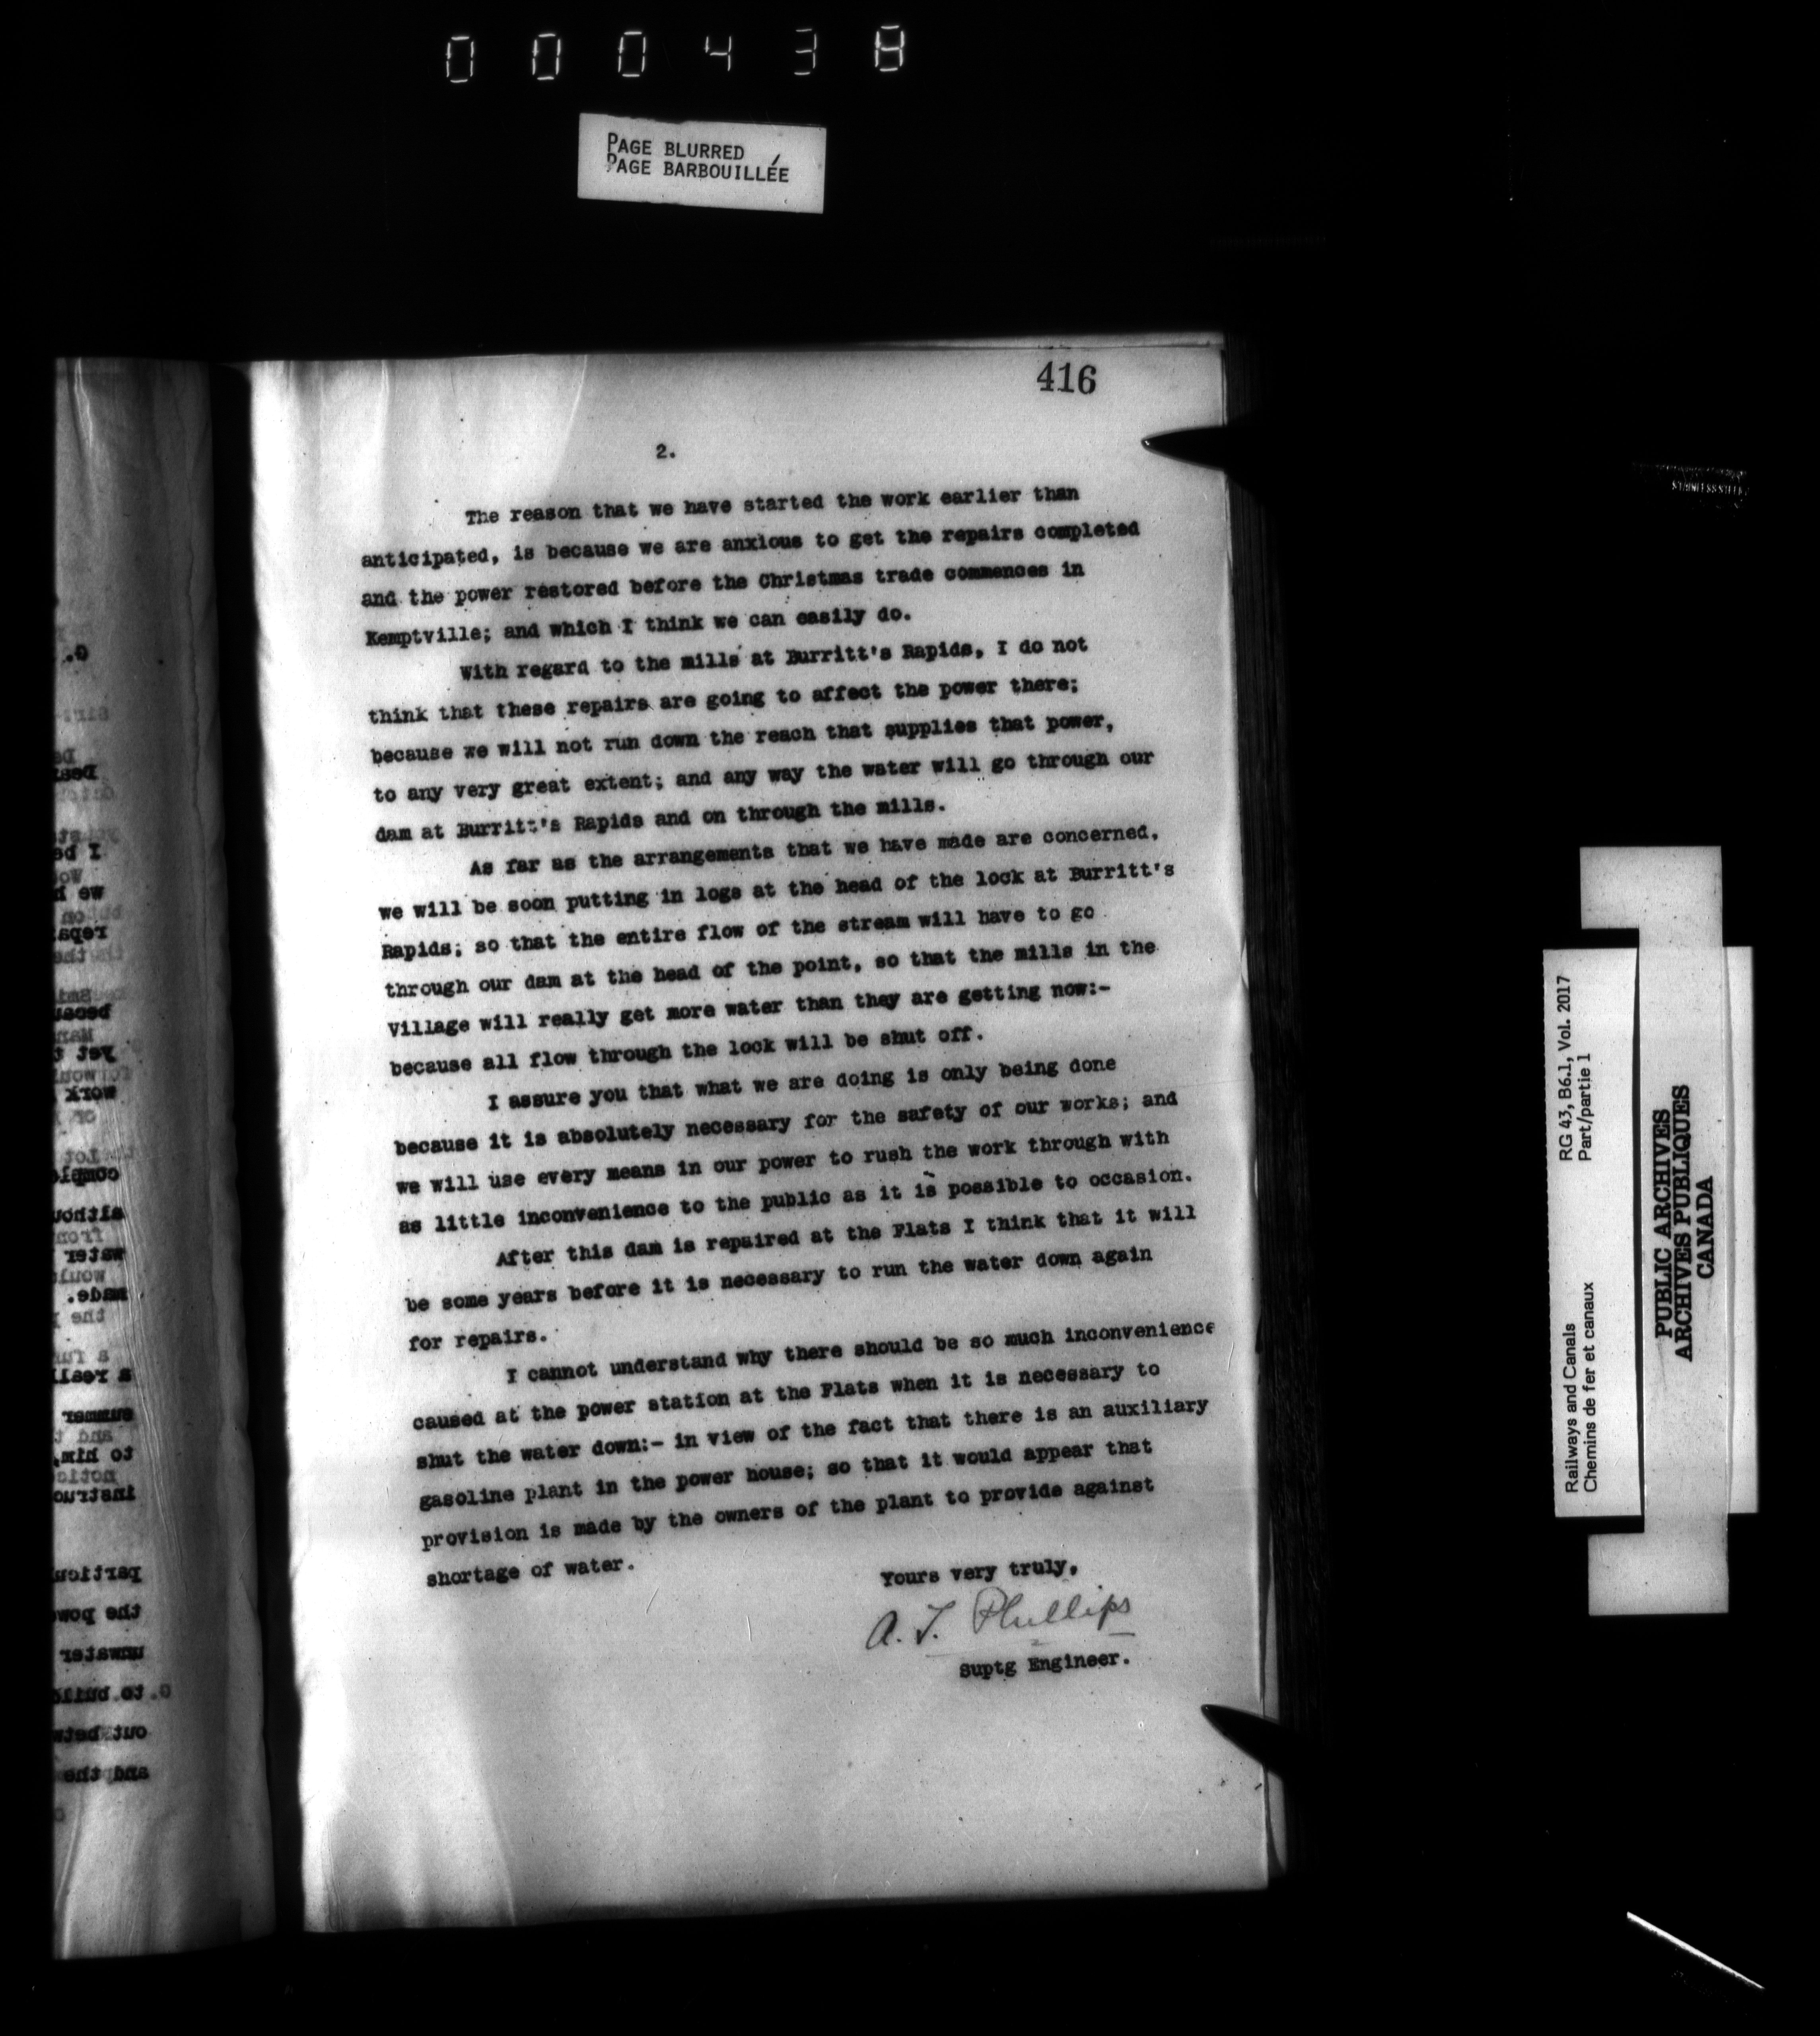 000438
PAGE BLURRED
PAGE BARBOUILLÉE
416
2.
The reason that we have started the work earlier than
anticipated, is because we are anxious to get the repairs completed
and the power restored before the Christmas trade commences in
Kemptville; and which I think we can easily do.
With regard to the mills at Burritt's Rapids, I do not
think that these repairs are going to affect the power there;
because we will not run down the reach that supplies that power,
to any very great extent; and any way the water will go through our
dam at Burritt's Rapids and on through the mills.
As far as the arrangements that we have made are concerned,
we will be soon putting in logs at the head of the lock at Burritt's
Rapids; so that the entire flow of the stream will have to go
through our dam at the head of the point, so that the mills in the
Village will really get more water than they are getting now:-
because all flow through the lock will be shut off.
I assure you that what we are doing is only being done
because it is absolutely necessary for the safety of our works; and
we will use every means in our power to rush the work through with
as little inconvenience to the public as it is possible to occasion.
After this dam is repaired at the Flats I think that it will
be some years before it is necessary to run the water down again
for repairs.
I cannot understand why there should be so much inconvenience
caused at the power station at the Flats when it is necessary to
shut the water down:- in view of the fact that there is an auxiliary
gasoline plant in the power house; so that it would appear that
provision is made by the owners of the plant to provide against
shortage of water.
Yours very truly,
A. T. Phillips
Suptg Engineer.
STAINLESS STEEL
Railways and Canals
Chemins de fer et canaux
RG 43, B6.1, Vol. 2017
Part/partie 1
PUBLIC ARCHIVES
ARCHIVES PUBLIQUES
CANADA